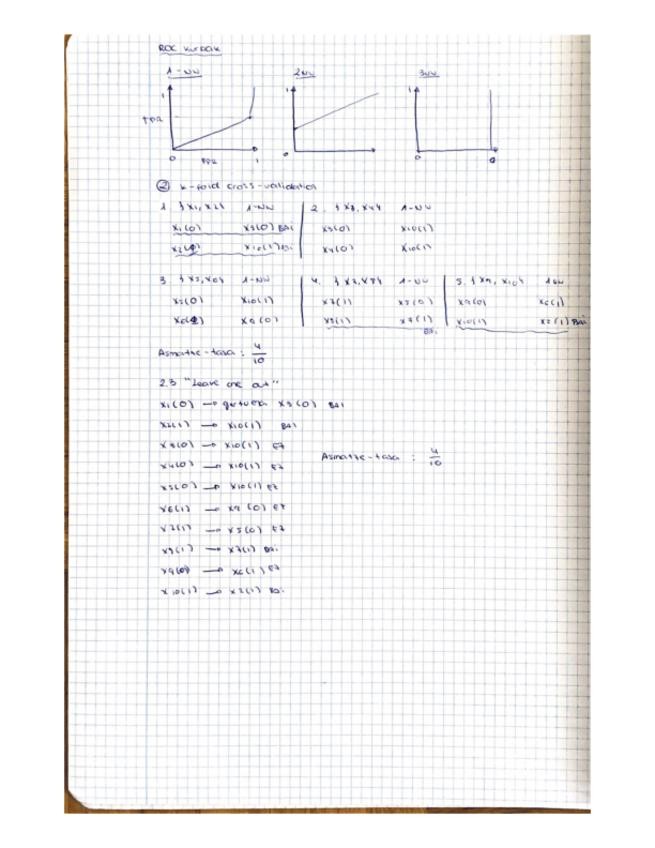 ROC kurbak
1-NN 2NN 3NN
1 1 1
TPR
0 FPR 1 0 0
② k-fold cross-validation
1. {x1, x2} 1-NN
x1(0) x3(0) BAI
x10(1) Bai
2. {x3, x4} 1-NN
x3(0) x10(1)
x4(0) x10(1)
3. 1-NN
x5(0) x10(1)
x9(0)
4. 1-NN
x7(1) x5(0)
x7(1)
Bai
5. {x9, x10} 1NN
x9(0) x6(1)
x10(1) x2(1) Bai
Asmatze-tasa : 4/10
2.3 "Leave one out"
x1(0) → gertuen x3(0) BAI
x2(1) → x10(1) BAI
x3(0) → x10(1) EZ
x4(0) → x10(1) EZ
Asmatze-tasa : 4/10
x5(0) → x10(1) EZ
x6(1) → x9(0) EZ
x7(1) → x5(0) EZ
→ x7(1) Bai
x9(0) → x6(1) EZ
x10(1) → x2(1) Bai